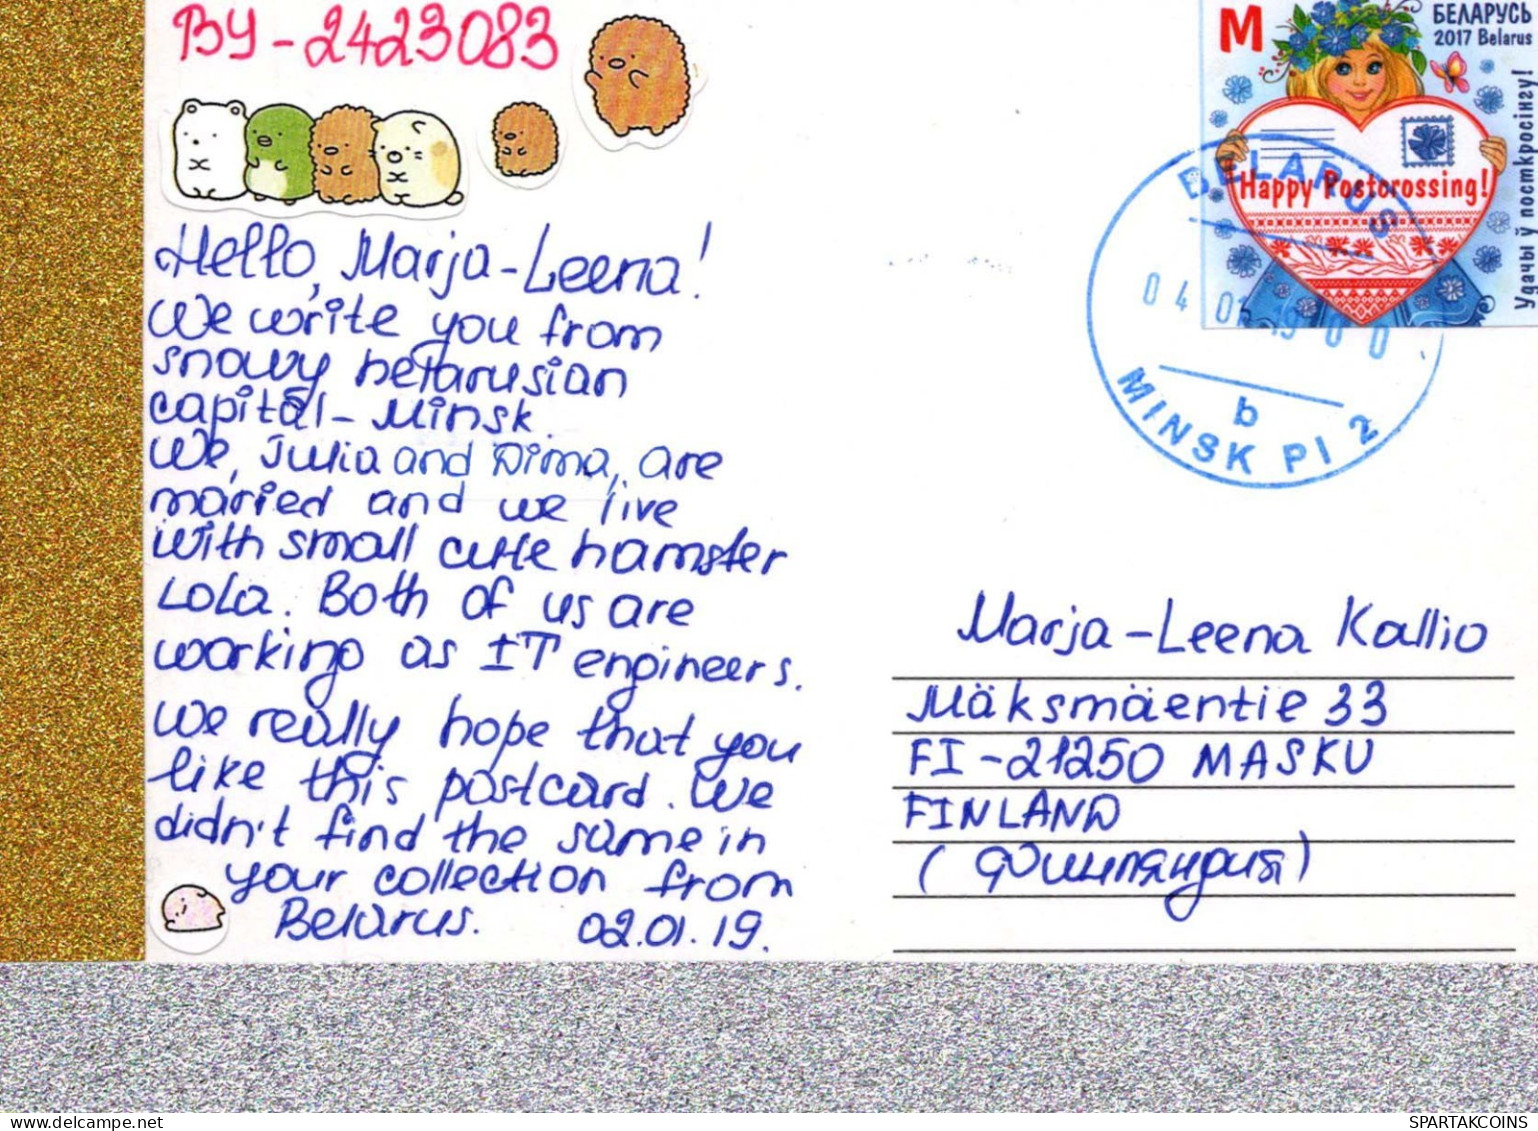 BY-2423083
Hello, Marja-Leena!
We write you from
snowy belarusian
capital - Minsk.
We, Julia and Dima, are
maried and we live
with small cute hamster
Lola. Both of us are
working as IT engineers.
We really hope that you
like this postcard. We
didn't find the same in
your collection from
Belarus. 02.01.19.
M
БЕЛАРУСЬ
2017 Belarus
Удачы ў посткросінгу!
Happy Postcrossing!
BELARUS
04 01 19 00
b
MINSK PI 2
Marja-Leena Kallio
Mäksmäentie 33
FI-21250 MASKU
FINLAND
(Финляндия)
SPARTAKCOINS